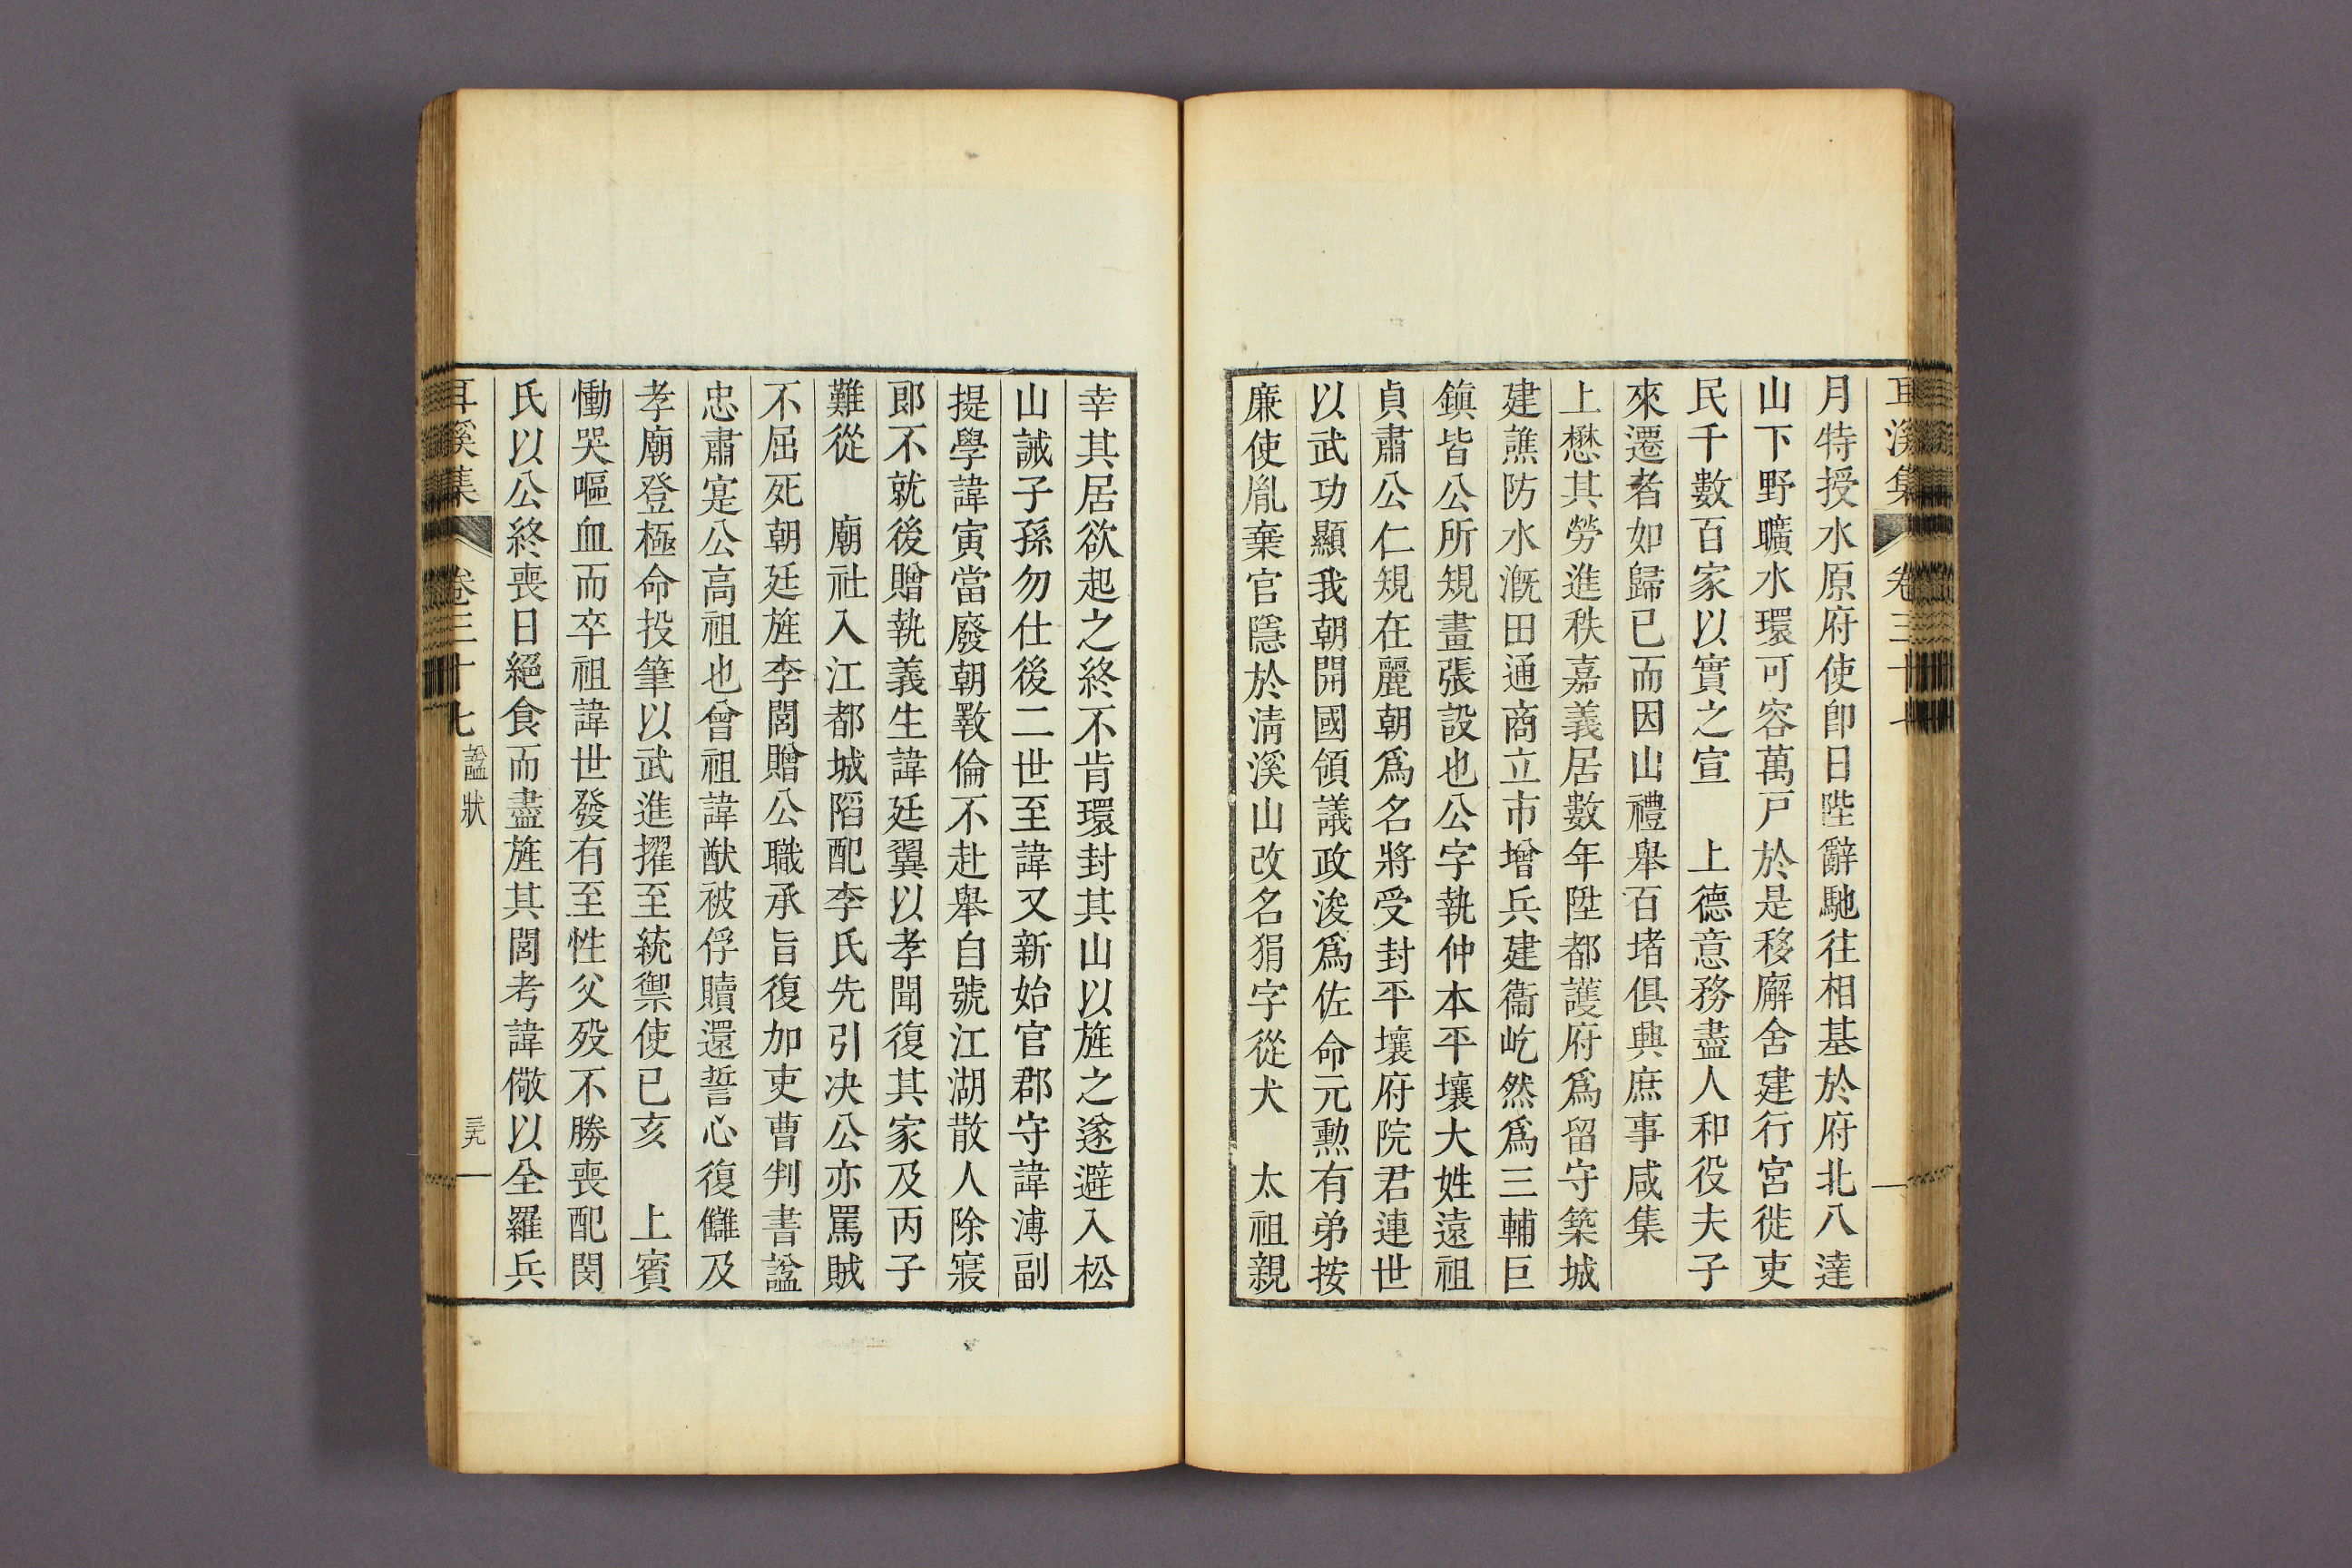 耳溪集 卷三十七
月特授水原府使卽日陛辭馳往相基於府北八達
山下野曠水環可容萬戸於是移廨舍建行宮徙吏
民千數百家以實之宣 上德意務盡人和役夫子
來遷者如歸已而因山禮舉百堵俱興庶事咸集
上懋其勞進秩嘉義居數年陞都護府爲留守築城
建譙防水漑田通商立市增兵建衞屹然爲三輔巨
鎭皆公所規畫張設也公字執仲本平壤大姓遠祖
貞肅公仁規在麗朝爲名將受封平壤府院君連世
以武功顯我朝開國領議政浚爲佐命元勳有弟按
廉使胤棄官隱於淸溪山改名狷字從犬 太祖親
幸其居欲起之終不肯環封其山以旌之遂避入松
山誡子孫勿仕後二世至諱又新始官郡守諱溥副
提學諱寅當廢朝斁倫不赴舉自號江湖散人除寢
郎不就後贈執義生諱廷翼以孝聞復其家及丙子
難從 廟社入江都城陷配李氏先引决公亦罵賊
不屈死朝廷旌李閭贈公職承旨復加吏曹判書諡
忠肅寔公高祖也曾祖諱猷被俘贖還誓心復讎及
孝廟登極命投筆以武進擢至統禦使已亥 上賓
慟哭嘔血而卒祖諱世發有至性父歿不勝喪配閔
氏以公終喪日絕食而盡旌其閭考諱儆以全羅兵
耳溪集 卷三十七 諡狀 三九